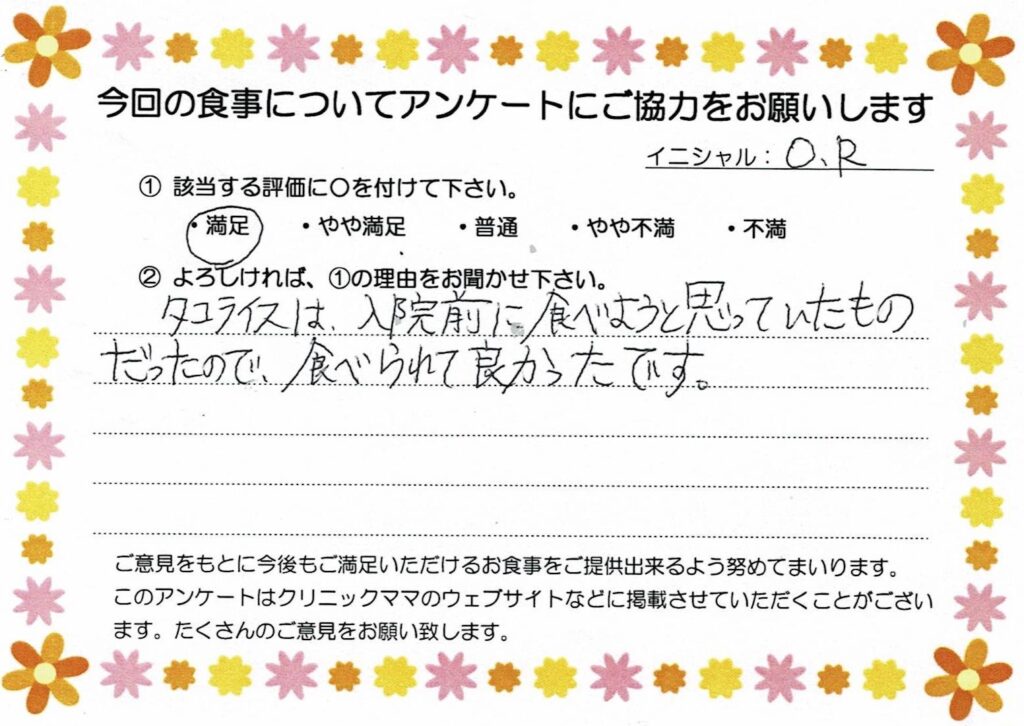 今回の食事についてアンケートにご協力をお願いします
イニシャル：O、R
① 該当する評価に〇を付けて下さい。
・満足 ・やや満足 ・普通 ・やや不満 ・不満
② よろしければ、①の理由をお聞かせ下さい。
タコライスは、入院前に食べようと思っていたもの
だったので、食べられて良かったです。
ご意見をもとに今後もご満足いただけるお食事をご提供出来るよう努めてまいります。
このアンケートはクリニックママのウェブサイトなどに掲載させていただくことがござい
ます。たくさんのご意見をお願い致します。